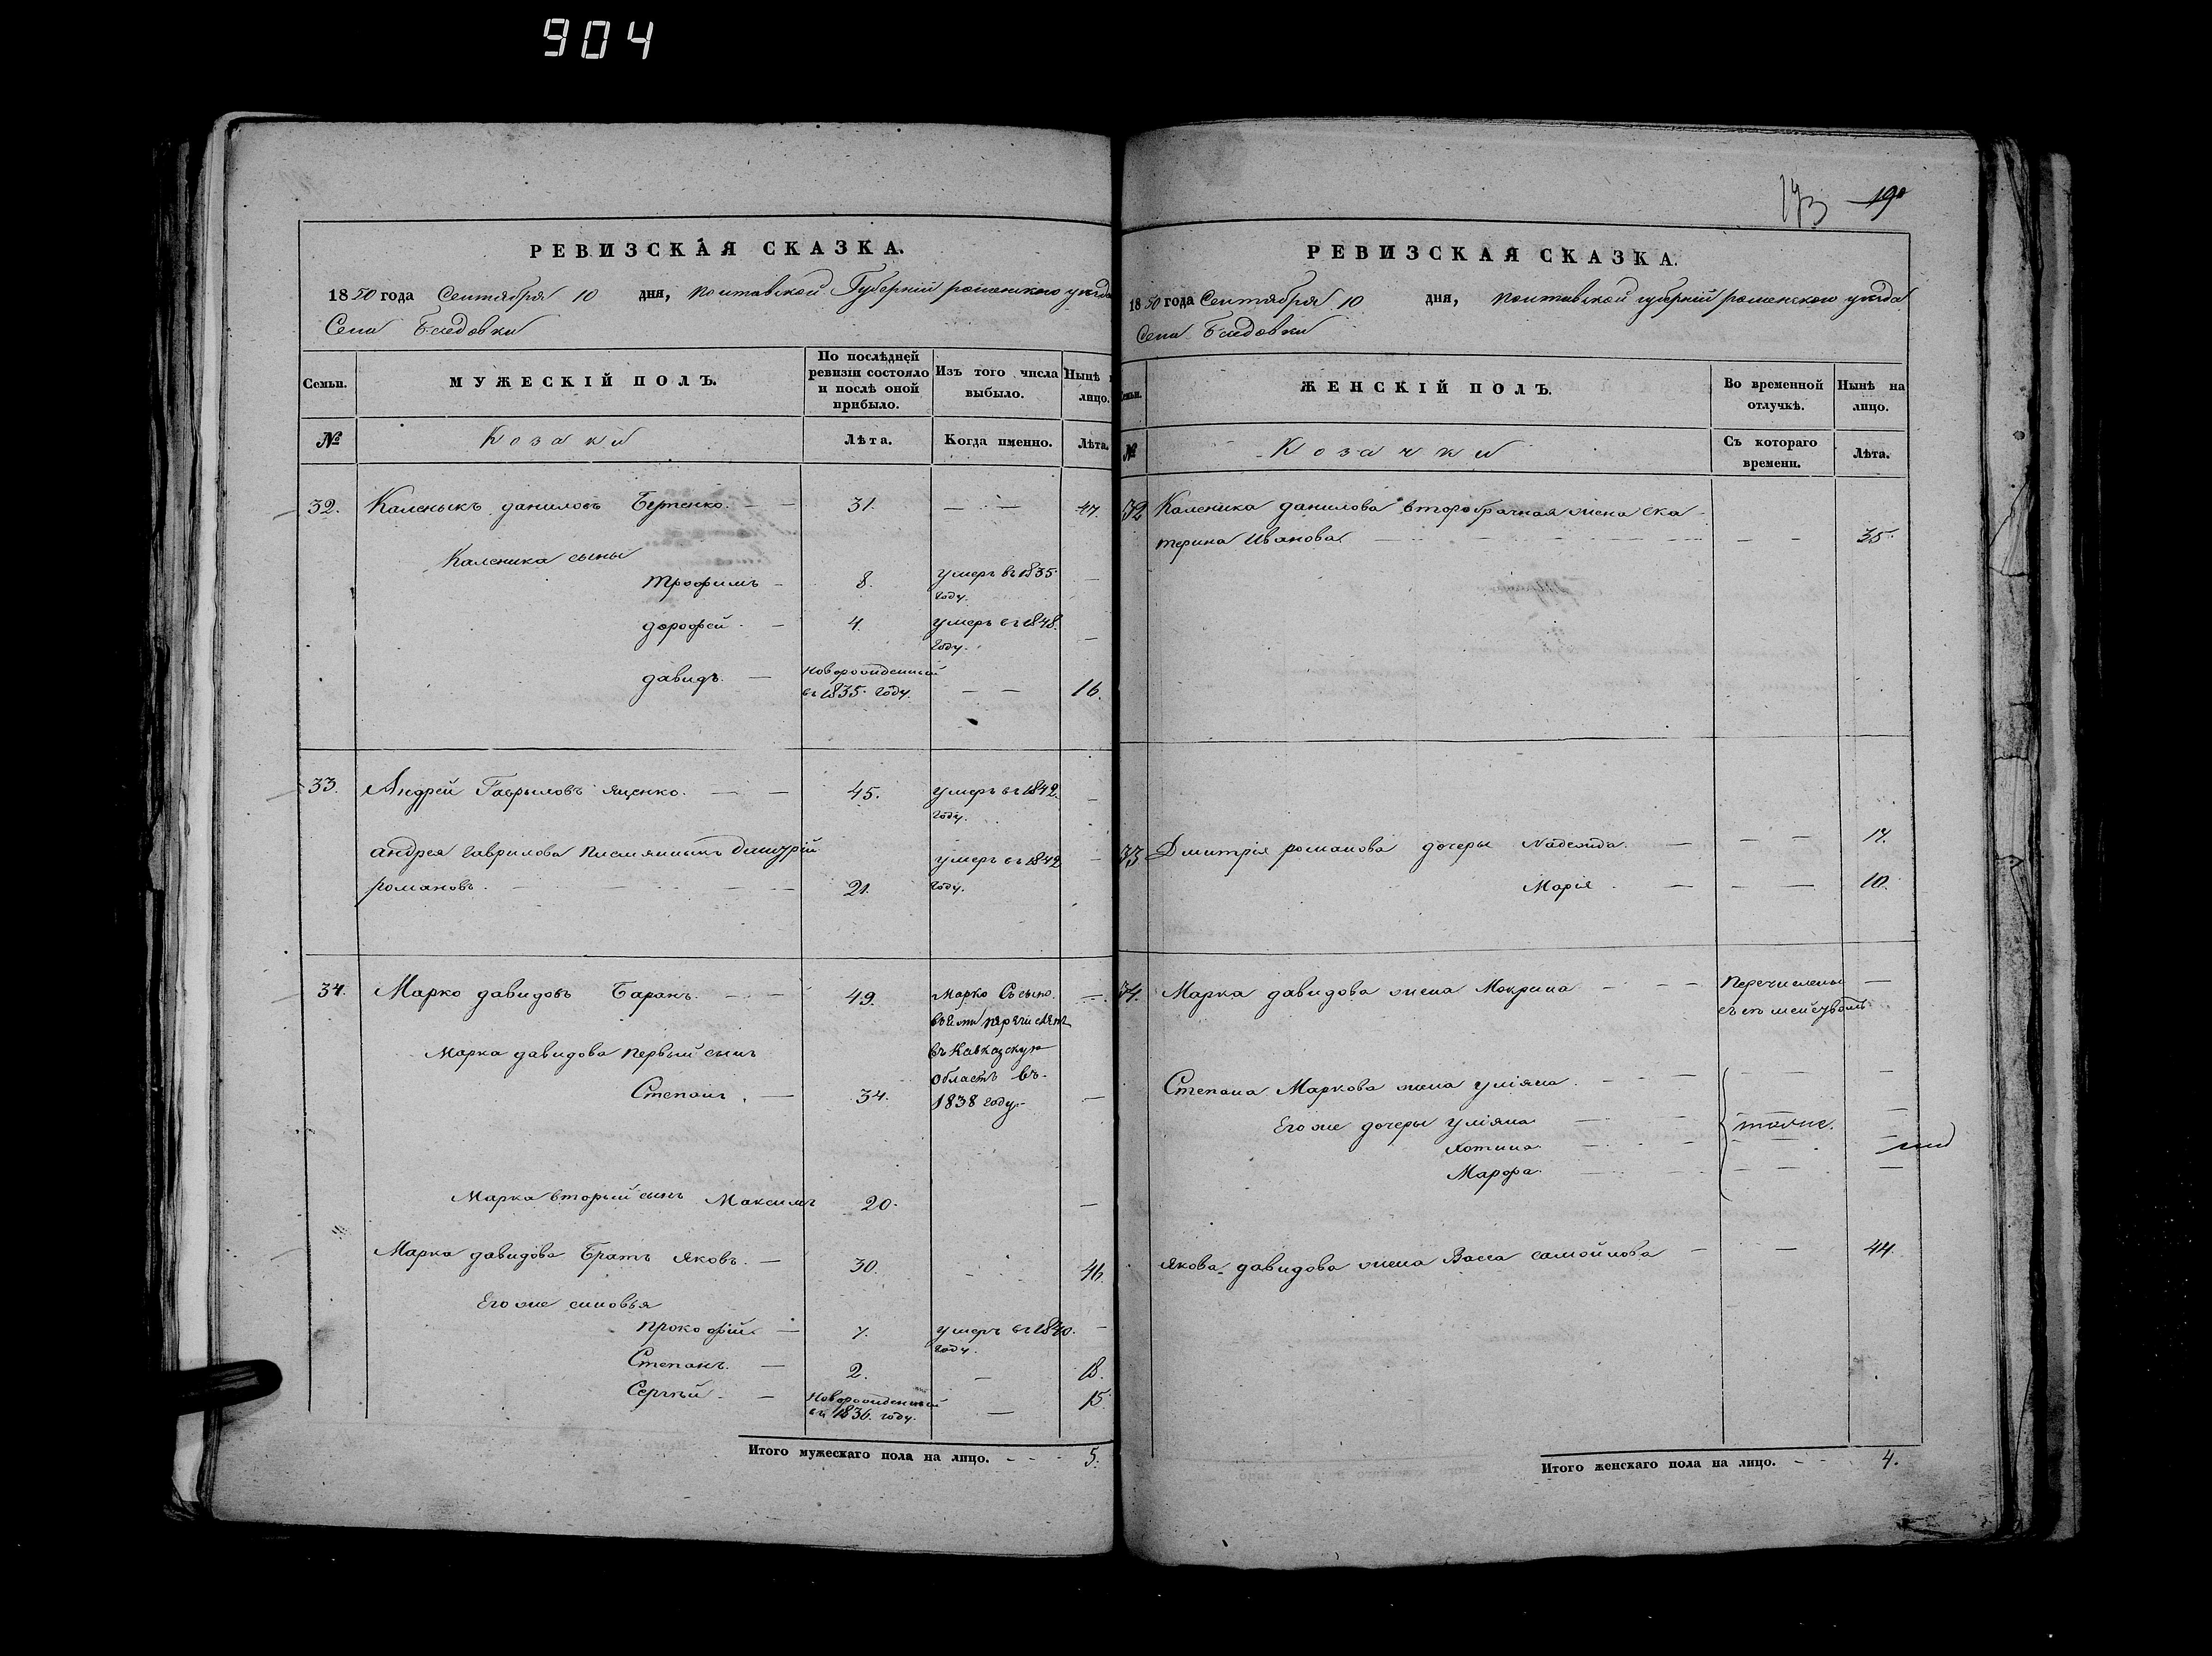 904
173 19
РЕВИЗСКАЯ СКАЗКА.
1850 года Сентября 10 дня, Полтавской Губерніи роменского уезда
Села Бледовки
Семьи. МУЖЕСКІЙ ПОЛЪ. По послѣдней ревизіи состояло и послѣ оной прибыло. Изъ того числа выбыло. Нынѣ лицо.
№ Козаки Лѣта. Когда именно. Лѣта.
32. Каленыкъ даниловъ 31. — — 47.
Каленика сыны
Трофимъ — 8. умеръ въ 1835 году. —
дорофей — 4. умеръ въ 1848 году. —
давидъ — новорожденный въ 1835 году. — — 16.
33. Андрей Гаврыловъ Яценко. — — 45. умеръ въ 1842 году. —
андрея гаврилова племянныкъ дмитрій
романовъ. — 21. умеръ въ 1842 году. —
34. Марко давидовъ Баранъ. — 49. Марко Съ сыновьями перечисленъ въ Кавказскую область въ 1838 году. —
Марка давидова первый сынъ
Степанъ. — 34. —
Марка вторый сынъ Максимъ 20. —
Марка давидова Братъ яковъ. — 30. — 46.
Его же сыновья
прокофій — 7. умеръ въ 1840 году. —
Степанъ. — 2. — 18.
Сергѣй. — новорожденный въ 1836 году. — 15.
Итого мужескаго пола на лицо. - - - 5.
РЕВИЗСКАЯ СКАЗКА.
1850 года Сентября 10 дня, полтавской губерніи роменского уезда
Села Бледовки
Семьи. ЖЕНСКІЙ ПОЛЪ. Во временной отлучкѣ. Нынѣ на лицо.
№ Козачки Съ котораго времени. Лѣта.
32 Каленика данилова второбрачная жена ека
терина Иванова — — — 35.
33 Дмитрія романова дочеры Надежда. — — — 17.
Марія — — — 10.
34. Марка давидова жена Мокрина — — перечислены —
Степана Маркова жена уліяна. — — —
Его же дочеры уліяна — тоже. —
Хотина — —
Марфа. — —
якова давидова жена Васса самойлова — — 44.
Итого женскаго пола на лицо. - - 4.